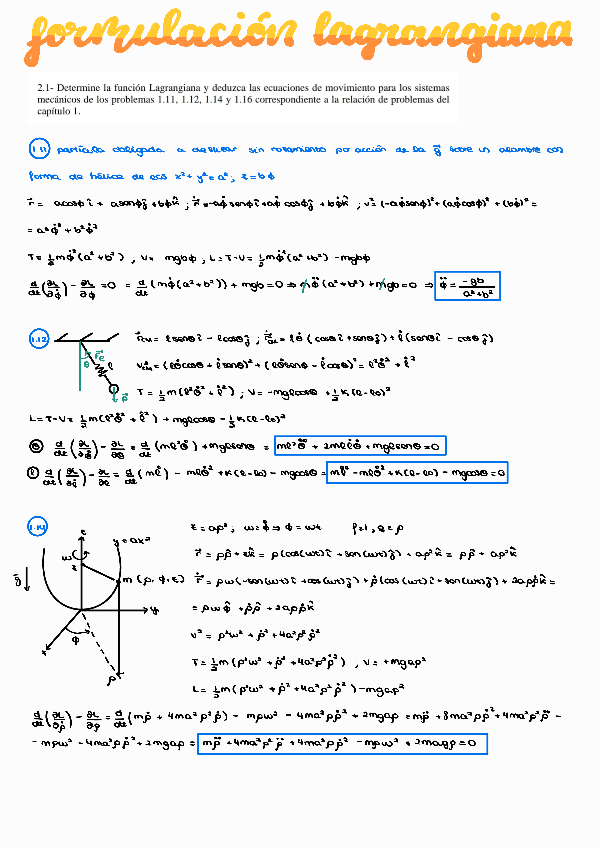 formulación lagrangiana
2.1- Determine la función Lagrangiana y deduzca las ecuaciones de movimiento para los sistemas
mecánicos de los problemas 1.11, 1.12, 1.14 y 1.16 correspondiente a la relación de problemas del
capítulo 1.
1.11 partícula obligada a deslizar sin rozamiento por acción de la g⃗ sobre un alambre con
forma de hélice de ecs x²+y²=a²; z=bϕ
r⃗ = acosϕ î + asenϕ ĵ + bϕ k̂ ; r⃗̇ = -aϕ̇ senϕ î + aϕ̇ cosϕ ĵ + bϕ̇ k̂ ; v² = (-aϕ̇senϕ)² + (aϕ̇cosϕ)² + (bϕ̇)² =
= a²ϕ̇² + b²ϕ̇²
T = 1/2 mϕ̇²(a²+b²) , V = mgbϕ ; L = T-V = 1/2 mϕ̇²(a²+b²) - mgbϕ
d/dt(∂L/∂ϕ̇) - ∂L/∂ϕ = 0 = d/dt (mϕ̇(a²+b²)) + mgb = 0 ⇒ mϕ̈(a²+b²) + mgb = 0 ⇒ ϕ̈ = -gb/(a²+b²)
1.12
θ r⃗e l
P⃗
r⃗CM = lsenθ î - lcosθ ĵ ; r⃗̇CM = lθ̇(cosθ î + senθ ĵ) + l̇(senθ î - cosθ ĵ)
v²CM = (lθ̇cosθ + l̇senθ)² + (lθ̇senθ - l̇cosθ)² = l²θ̇² + l̇²
T = 1/2 m(l²θ̇² + l̇²) ; V = -mglcosθ + 1/2 K(l-l₀)²
L = T-V = 1/2 m(l²θ̇² + l̇²) + mglcosθ - 1/2 K(l-l₀)²
θ d/dt(∂L/∂θ̇) - ∂L/∂θ = d/dt (ml²θ̇) + mglsenθ = ml²θ̈ + 2mll̇θ̇ + mglsenθ = 0
l d/dt(∂L/∂l̇) - ∂L/∂l = d/dt (ml̇) - mlθ̇² + K(l-l₀) - mgcosθ = ml̈ - mlθ̇² + K(l-l₀) - mgcosθ = 0
1.14
z y=ax²
ω
z
m (ρ, ϕ, z)
g⃗
y
x
ϕ
ρ
z = aρ² ; ω = ϕ̇ ⇒ ϕ = ωt f=1, q=ρ
r⃗ = ρρ̂ + zk̂ = ρ(cos(ωt) î + sen(ωt) ĵ) + aρ² k̂ = ρρ̂ + aρ² k̂
r⃗̇ = ρω(-sen(ωt) î + cos(ωt) ĵ) + ρ̇(cos(ωt) î + sen(ωt) ĵ) + 2aρρ̇ k̂ =
= ρωϕ̂ + ρ̇ρ̂ + 2aρρ̇ k̂
v² = ρ²ω² + ρ̇² + 4a²ρ²ρ̇²
T = 1/2 m(ρ²ω² + ρ̇² + 4a²ρ²ρ̇²) , V = +mgaρ²
L = 1/2 m(ρ²ω² + ρ̇² + 4a²ρ²ρ̇²) - mgaρ²
d/dt(∂L/∂ρ̇) - ∂L/∂ρ = d/dt (mρ̇ + 4ma²ρ²ρ̇) - mρω² - 4ma²ρρ̇² + 2mgaρ = mρ̈ + 8ma²ρρ̇² + 4ma²ρ²ρ̈ -
- mρω² - 4ma²ρρ̇² + 2mgaρ = mρ̈ + 4ma²ρ²ρ̈ + 4ma²ρρ̇² - mρω² + 2magρ = 0